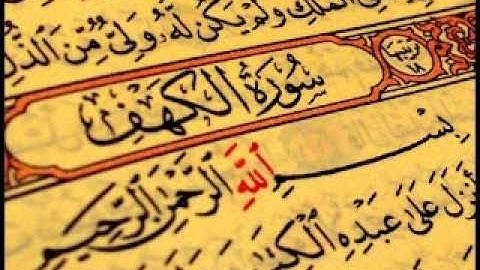 ٱلْمُلْكِ وَلَمْ يَكُن لَّهُۥ وَلِىٌّ مِّنَ ٱلذُّلِّ
سُورَةُ الْكَهْفِ
بِسْمِ ٱللَّهِ ٱلرَّحْمَٰنِ ٱلرَّحِيمِ
أَنزَلَ عَلَىٰ عَبْدِهِ ٱلْكِتَٰبَ